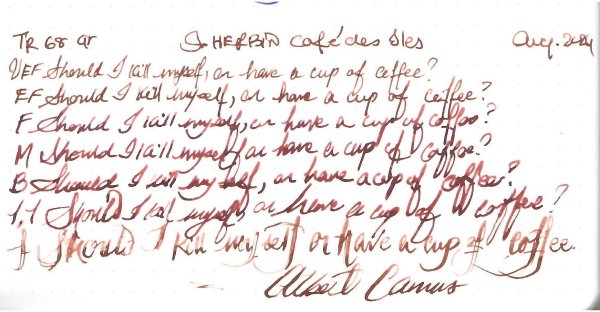 TR 68 gr J. HERBIN café des îles Aug. 2024
VEF Should I kill myself, or have a cup of coffee?
EF Should I kill myself, or have a cup of coffee?
F Should I kill myself, or have a cup of coffee?
M Should I kill myself, or have a cup of coffee?
B Should I kill myself, or have a cup of coffee?
1.1 Should I kill myself, or have a cup of coffee?
Should I kill myself or have a cup of coffee
Albert Camus